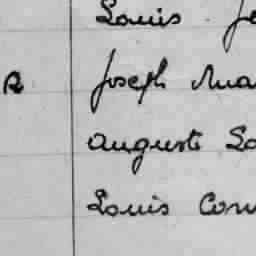 Louis Je
R Joseph Mar
Auguste Lo
Louis Corn